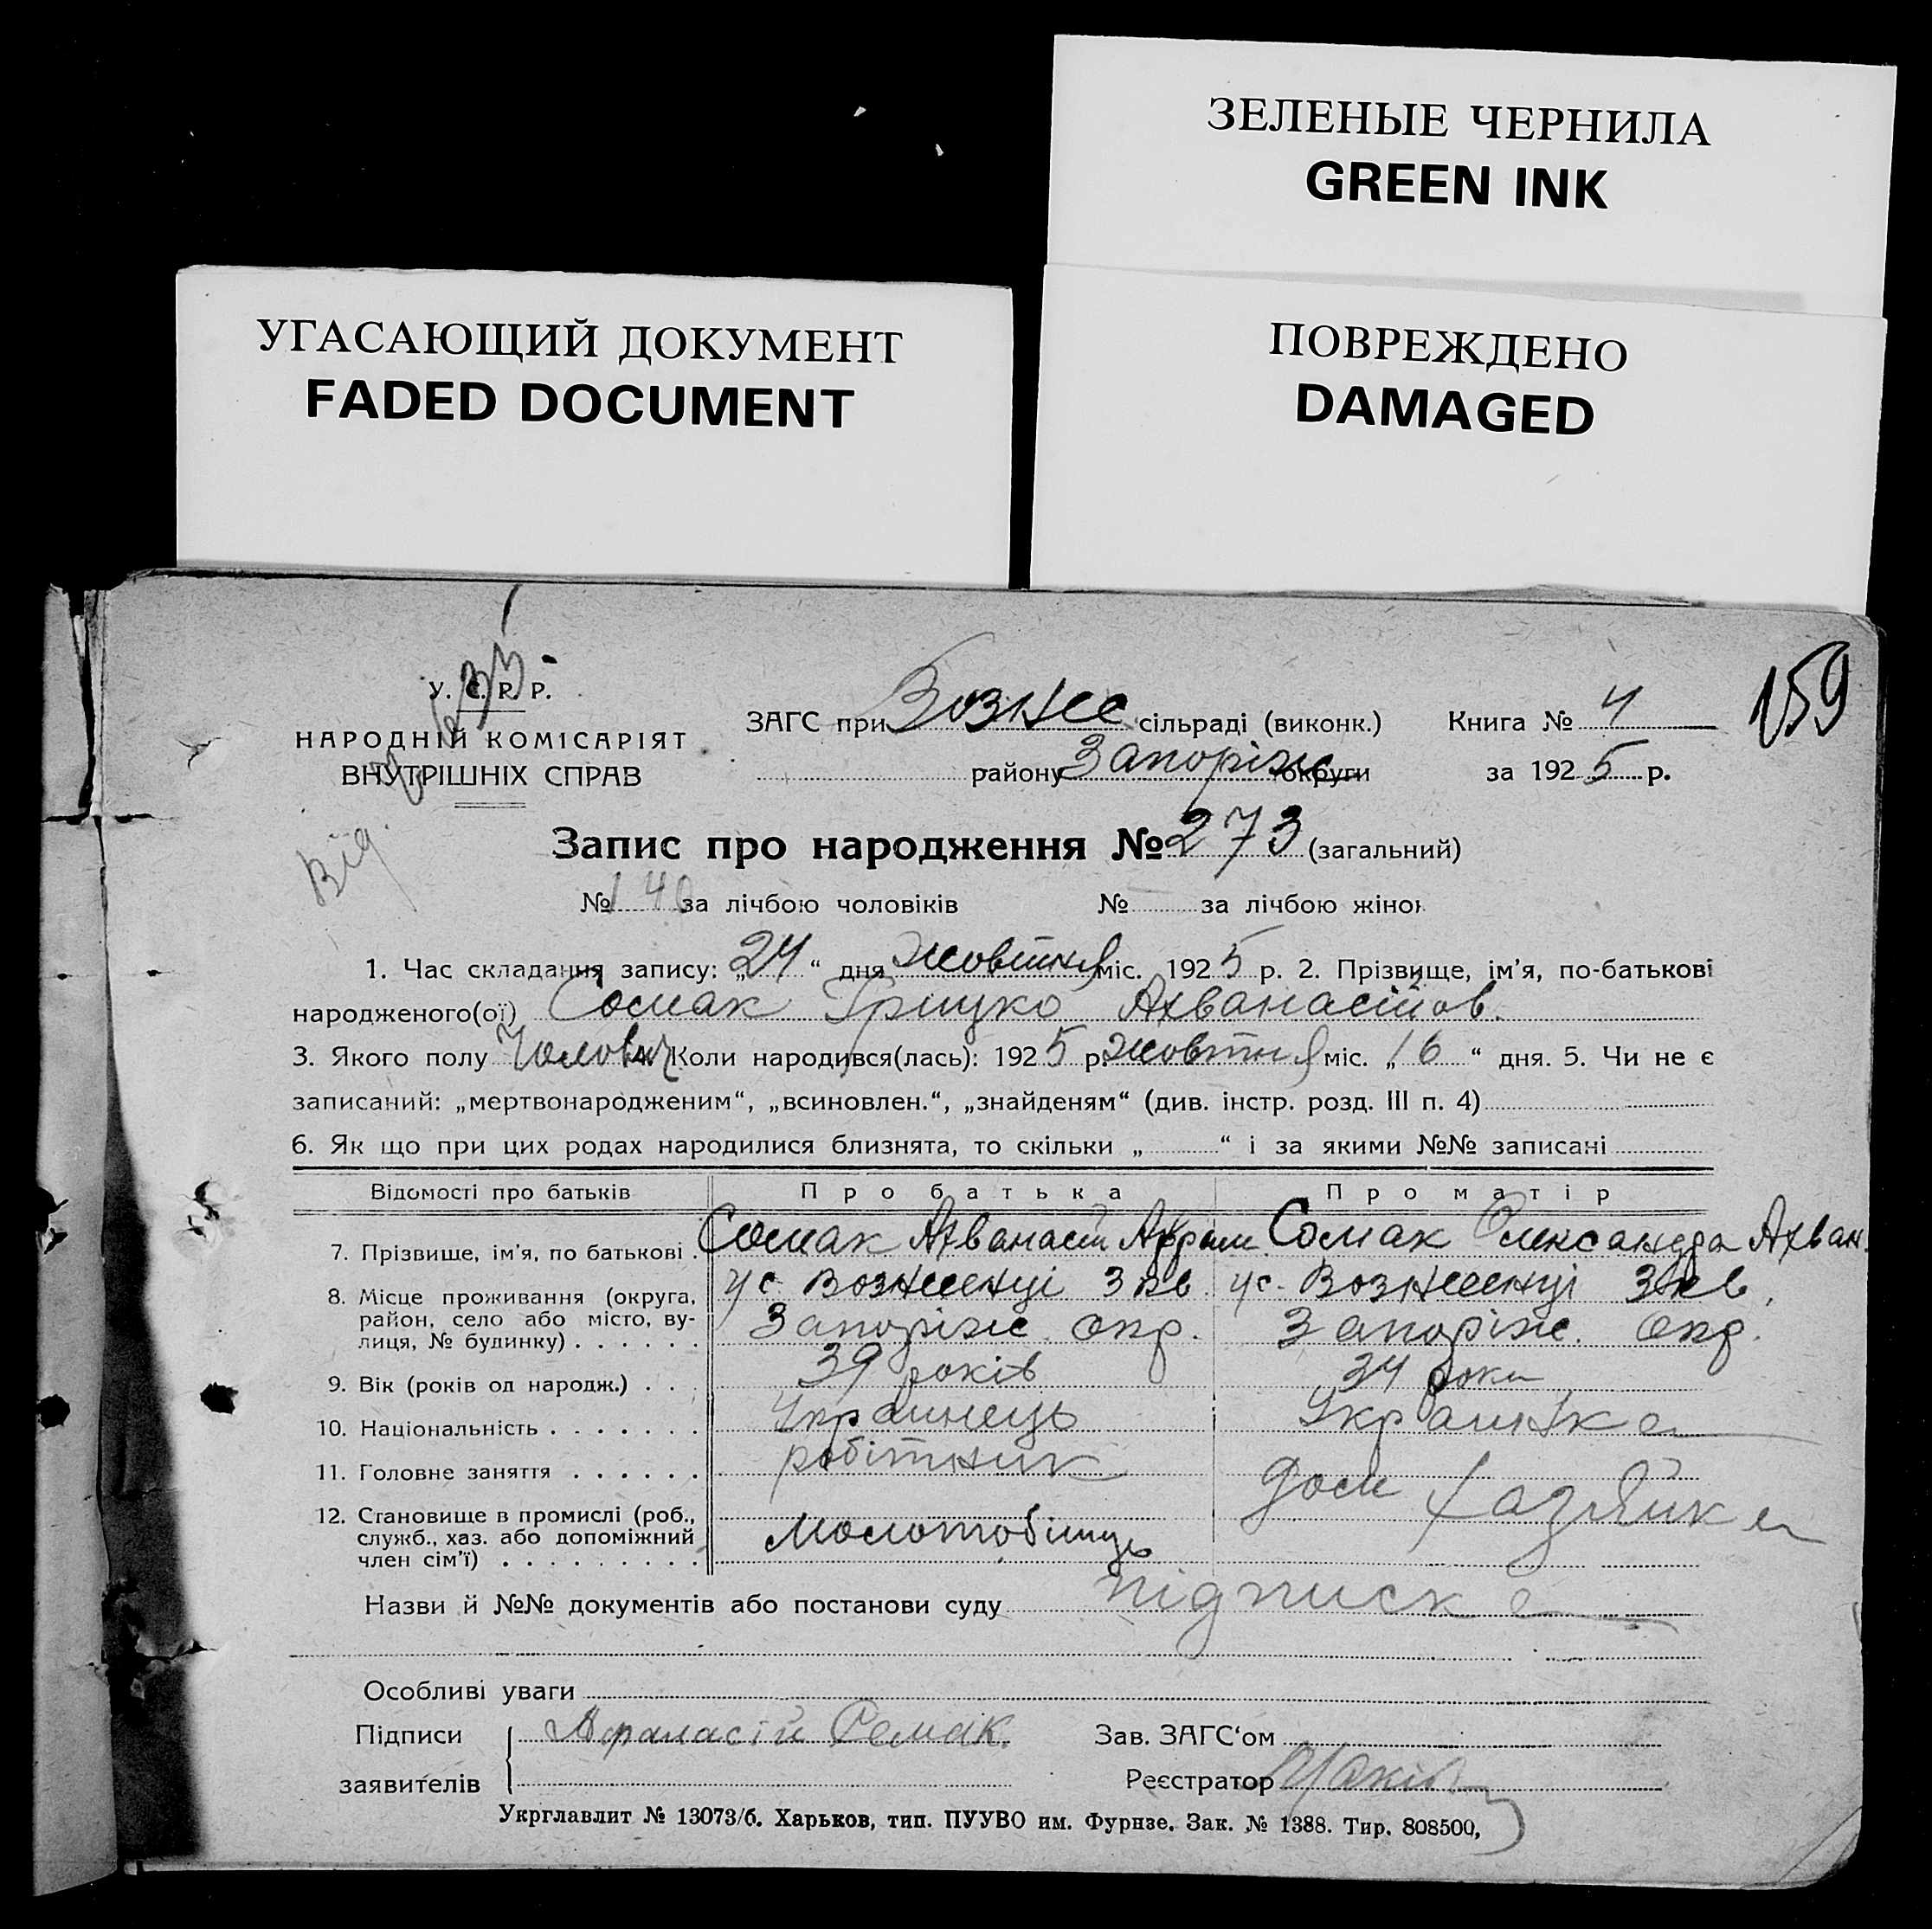 ЗЕЛЕНЫЕ ЧЕРНИЛА
GREEN INK
УГАСАЮЩИЙ ДОКУМЕНТ
FADED DOCUMENT
ПОВРЕЖДЕНО
DAMAGED
159
У. С. Р. Р.
НАРОДНІЙ КОМІСАРІЯТ
ВНУТРІШНІХ СПРАВ
Від.
ЗАГС при Вознес сільраді (виконк.) Книга № 4
району Запоріж округи за 1925 р.
Запис про народження № 273 (загальний)
№ 140 за лічбою чоловіків № за лічбою жінок
1. Час складання запису: „24“ дня жовтня міс. 1925 р. 2. Прізвище, ім'я, по-батькові
народженого(ої) Сомак Грицко Ахванасійов.
3. Якого полу Чоловіч 4. Коли народився(лась): 1925 р. жовтня міс. „16“ дня. 5. Чи не є
записаний: „мертвонародженим“, „всиновлен.“, „знайденям“ (див. інстр. розд. III п. 4)
6. Як що при цих родах народилися близнята, то скільки „ “ і за якими №№ записані
Відомості про батьків Про батька Про матір
7. Прізвище, ім'я, по батькові . Сомак Ахванасій Сомак Олександра Ахван.
8. Місце проживання (округа,
район, село або місто, ву-
лиця, № будинку) . . . . . .
Запоріж. окр. Запоріж. окр.
9. Вік (років од народж.) . . . 39 років 34 роки
10. Національність . . . . . . . Украинець Украинка
11. Головне заняття . . . . . . робітник дом хазяйка
12. Становище в промислі (роб.,
служб., хаз. або допоміжний
член сім'ї) . . . . . . . . .
Молотобієць
Назви й №№ документів або постанови суду підписка
Особливі уваги
Підписи
заявителів
Афанасій Семак.
Зав. ЗАГС'ом
Реєстратор
Укрглавлит № 13073/б. Харьков, тип. ПУУВО им. Фурнзе. Зак. № 1388. Тир. 808500,